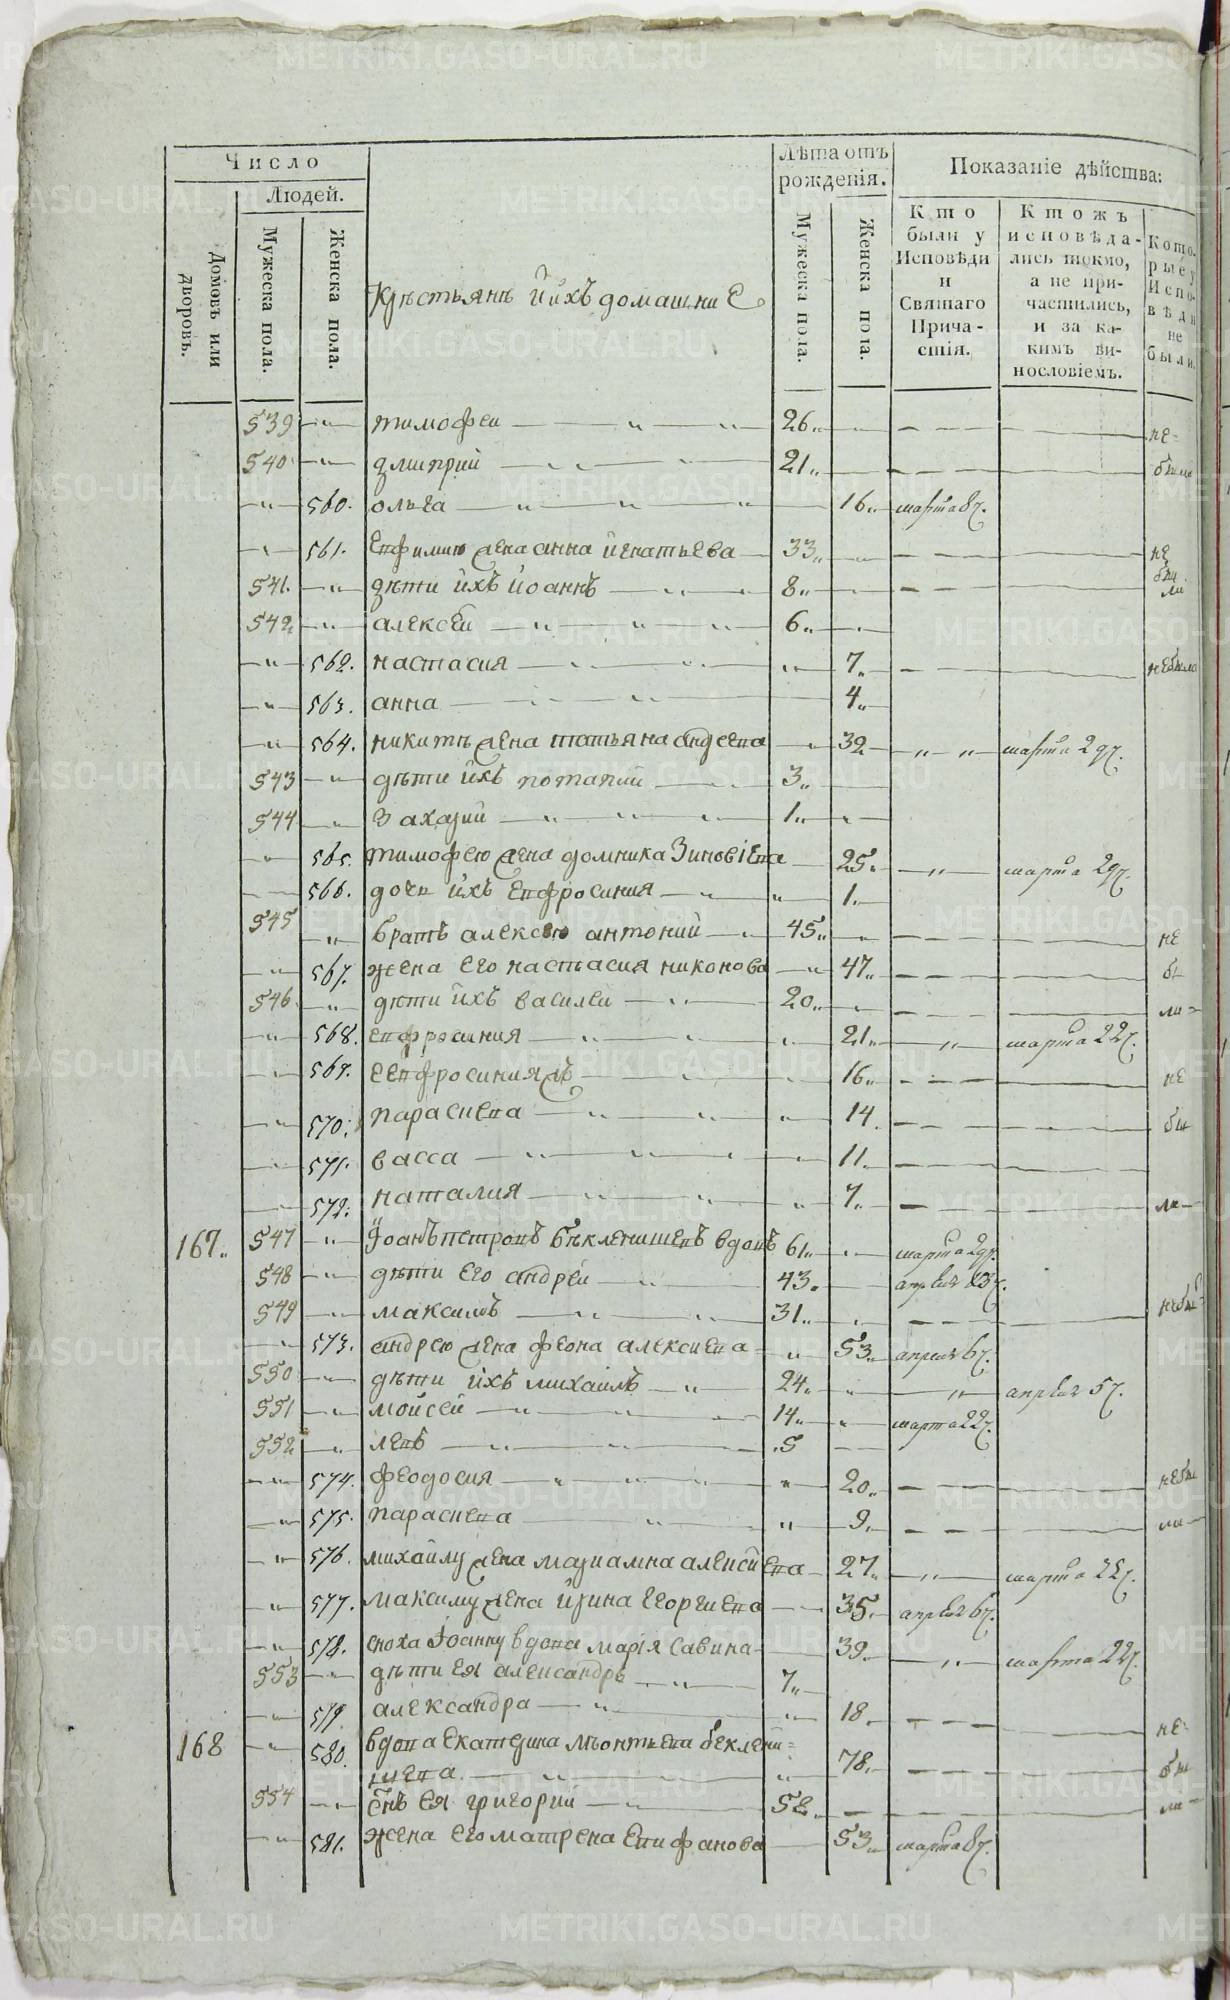 Число
Людей.
Домовъ или дворовъ.
Мужеска пола.
Женска пола.
Крѣстьянѣ Ййхъ домашниЕ
Лѣта отъ рожденія.
Мужеска пола.
Женска пола.
Показаніе дѣйства:
Кто были у Исповѣди и Святаго Причастія.
Ктожъ исповѣдались токмо, а не причастились, и за какимъ винословіемъ.
Которые у Исповѣди не были.
539 тимофеи 26 не
540 дмитрий 21 были
560. ольга 16 марта 8 ч.
561. Евфимию жена анна йгнатьева 33 не
541. дѣти йхъ йоаннъ 8 бы ли
542 алексѣй 6
562. настасия 7 небыла
563. анна 4
564. никитѣ жена татьяна андреева 32 марта 29 ч.
543 дѣти йхъ потапий 3
544 Захарий 1
565. тимофею жена домника Зиновіева 25 марта 29 ч.
566. дочь йхъ Евфросиния 1
545 братъ алексѣю антоний 45 не
567. жена его настасия никонова 47 бы
546 дѣти йхъ василей 20 ли
568. евфросиния 21 марта 22 ч.
569. 16 не
570. параскева 14 бы
571. васса 11
572. наталия 7 ли
167 547 Йоанъ петровъ бѣкленищевъ вдовъ 61 марта 29 ч.
548 дѣти его андрей 43 апреля 23 ч.
549 максимъ 31 небы
573. андрею жена феона алексиева 53 апреля 6 ч.
550 дѣти йхъ михаилъ 24 апреля 5 ч.
551 мойсей 14 марта 22 ч.
552 левъ 5
574. феодосия 20 небы
575. параскева 9 ли
576. михаилу жена мариамна алексиева 27 марта 22 ч.
577. максиму жена йрина георгиева 35 апреля 6 ч.
578. сноха Іоанну вдова марія савина 39 марта 22 ч.
553 дѣти ея александръ 7
579 александра 18 не
168 580 вдова екатерина леонтьева беклени=
щева 78 бы
554 снъ ея григорий 52 ли
581. жена его матрена епифанова 53 марта 8 ч.
METRIKI.GASO-URAL.RU